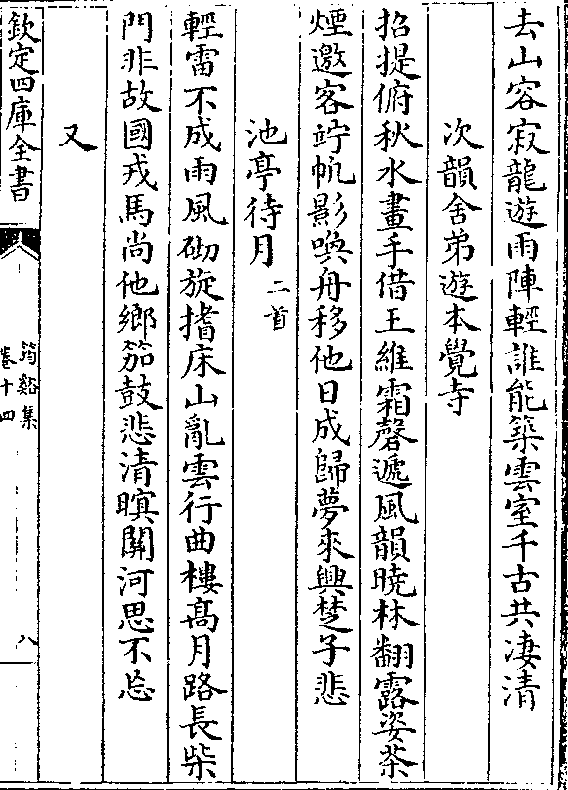 去山容寂龍遊雨陣輕誰能築雲室千古共凄清
次韻舍弟遊本覺寺
招提俯秋水畫手借王維霜磬遞風韻曉林翻露姿茶
煙邀客竚帆影喚舟移他日成歸夢來興楚子悲
池亭待月二首
輕雷不成雨風砌旋揩床山亂雲行曲樓髙月路長柴
門非故國戎馬尚他鄉笳鼓悲清暝關河思不忘
又
欽定四庫全書
筠谿集
卷十四
八